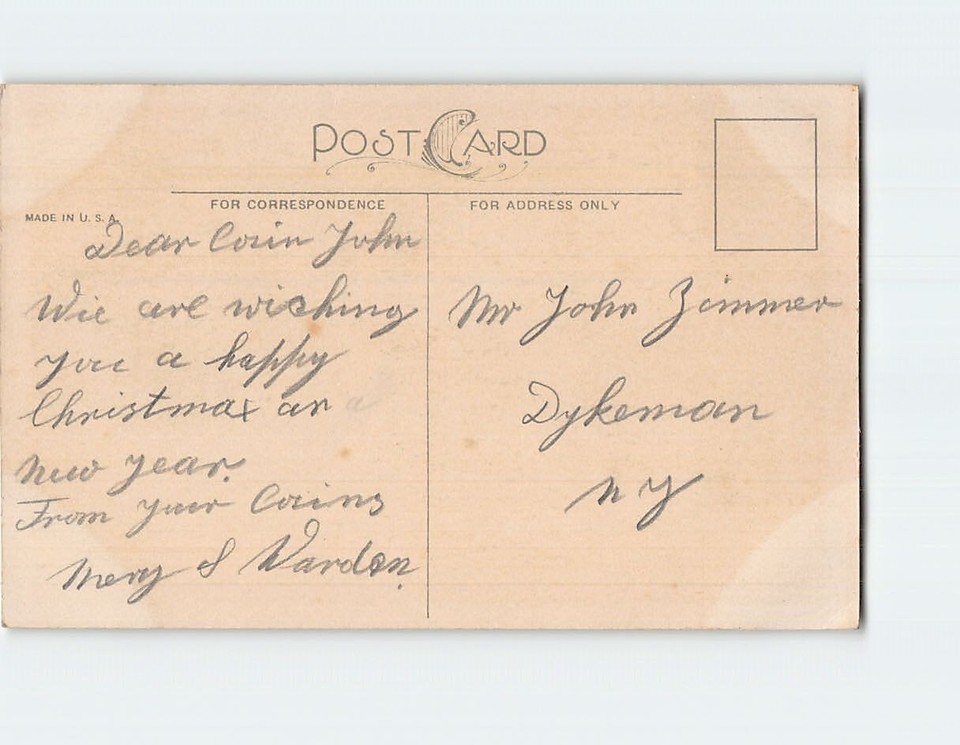 POST CARD
FOR CORRESPONDENCE
FOR ADDRESS ONLY
MADE IN U. S. A.
Dear Cosin John
Wie are wisching
you a happy
Christmax an
New year.
From your Cosins
Mery & Warden.
Mr John Zimmer
Dykeman
N Y